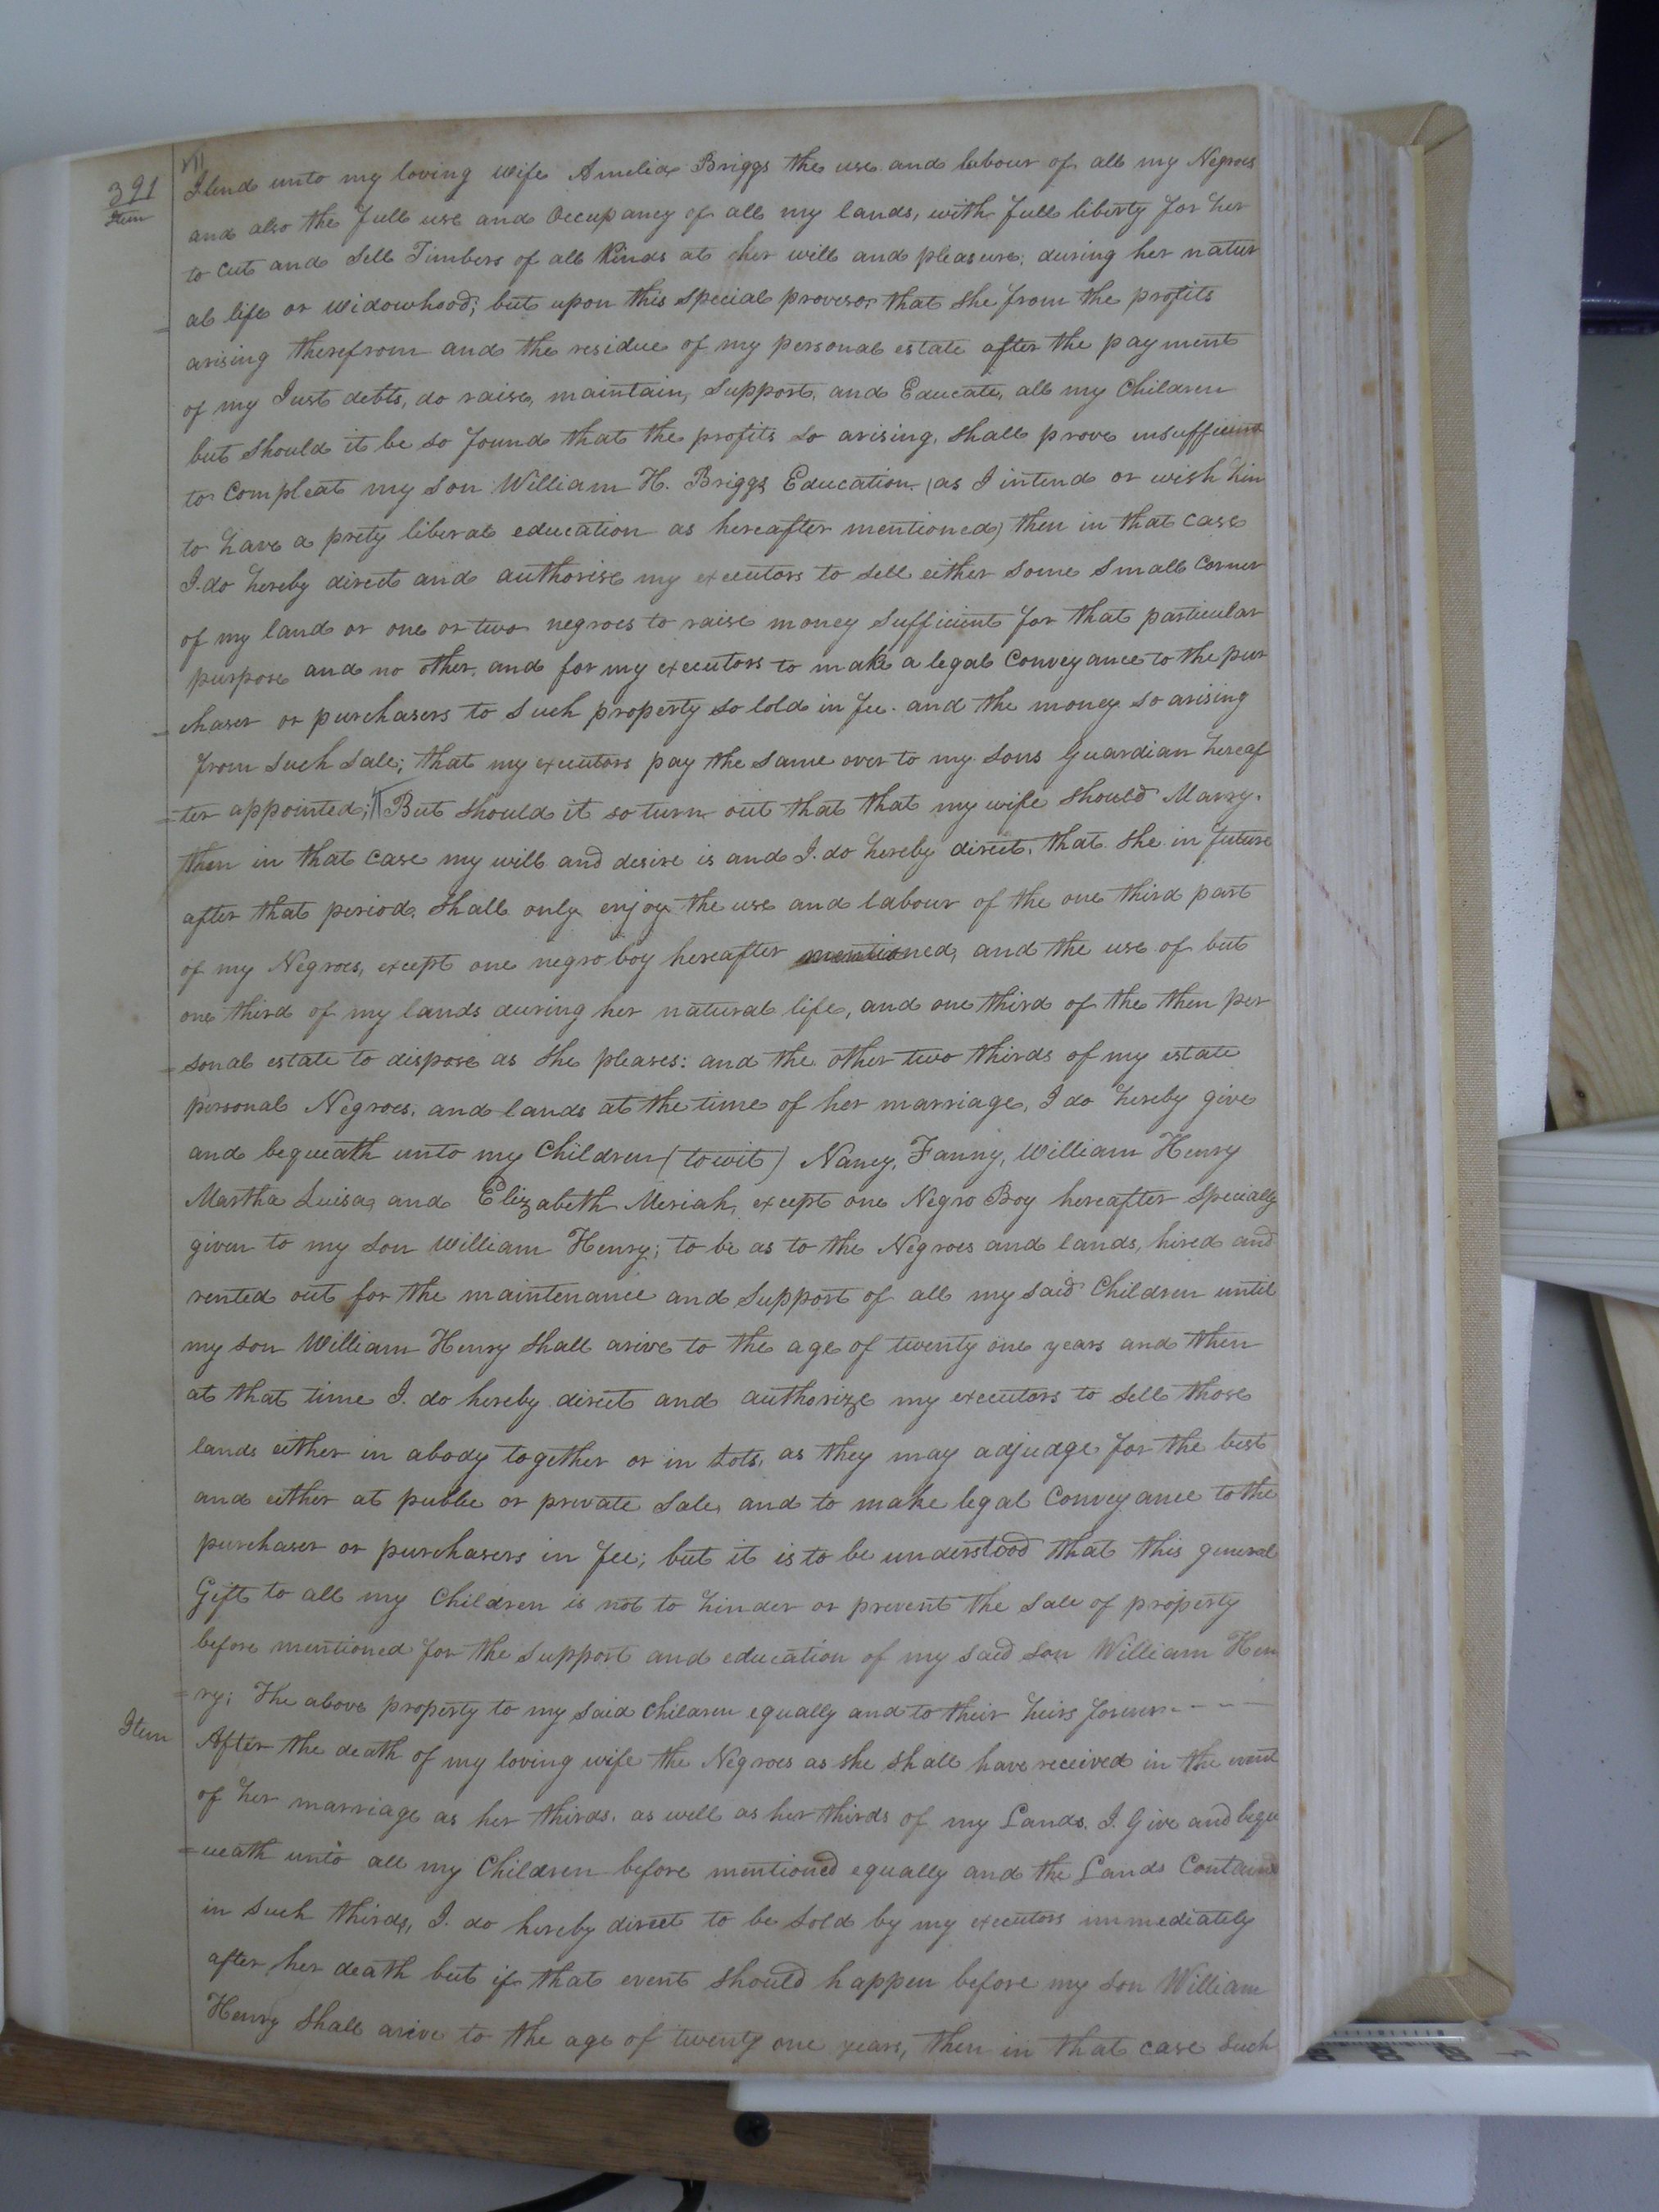 391
Item
I lend unto my loving wife Amelia Briggs the use and labour of all my Negroes
and also the full use and Occupancy of all my lands, with full liberty for her
to cut and Sell Timbers of all Kinds at her will and pleasure; during her natur
al life or widowhood; but upon this special proviso that she from the profits
arising therefrom and the residue of my personal estate after the payment
of my Just debts, do raise, maintain, Support, and Educate, all my Children
but should it be so found that the profits so arising, shall prove insufficient
to Compleat my son William H. Briggs Education (as I intend or wish him
to have a prety liberal education as hereafter mentioned) then in that case
I do hereby direct and authorise my executors to sell either some small corner
of my land or one or two negroes to raise money sufficient for that particular
purpose and no other, and for my executors to make a legal Conveyance to the pur
chaser or purchasers to such property so sold in fee. and the money so arising
from such sale; that my executors pay the same over to my sons Guardian hereaf
=ter appointed; But should it so turn out that that my wife should Marry.
then in that case my will and desire is and I do hereby direct, that she in future
after that period, shall only enjoy the use and labour of the one third part
of my Negroes, except one negro boy hereafter mentioned, and the use of but
one third of my lands during her natural life, and one third of the then per
=sonal estate to dispose as she pleases: and the other two thirds of my estate
personal Negroes, and lands at the time of her marriage, I do hereby give
and bequeath unto my Children (towit) Nancy, Fanny, William Henry
Martha Luisa, and Elizabeth Meriah, except one Negro Boy hereafter specially
given to my son William Henry; to be as to the Negroes and lands, hired and
rented out for the maintenance and Support of all my said Children until
my son William Henry shall arive to the age of twenty one years and then
at that time I do hereby direct and authorize my executors to sell those
lands either in abody together or in Lots, as they may adjudge for the best
and either at publc or private sale, and to make legal Conveyance to the
purchaser or purchasers in fee; but it is to be understood that this general
Gift to all my Children is not to hinder or prevent the sale of property
before mentioned for the support and education of my said son William Hen
=ry; The above property to my said Children equally and to their heirs forever. - - -
Item
After the death of my loving wife the Negroes as she shall have received in the event
of her marriage as her thirds, as well as her thirds of my Lands. I Give and beqe
=ueath unto all my Children before mentioned equally and the Lands Contained
in such thirds, I do hereby direct to be sold by my executors immediately
after her death but if that event should happen before my son William
Henry shall arive to the age of twenty one years, then in that case such